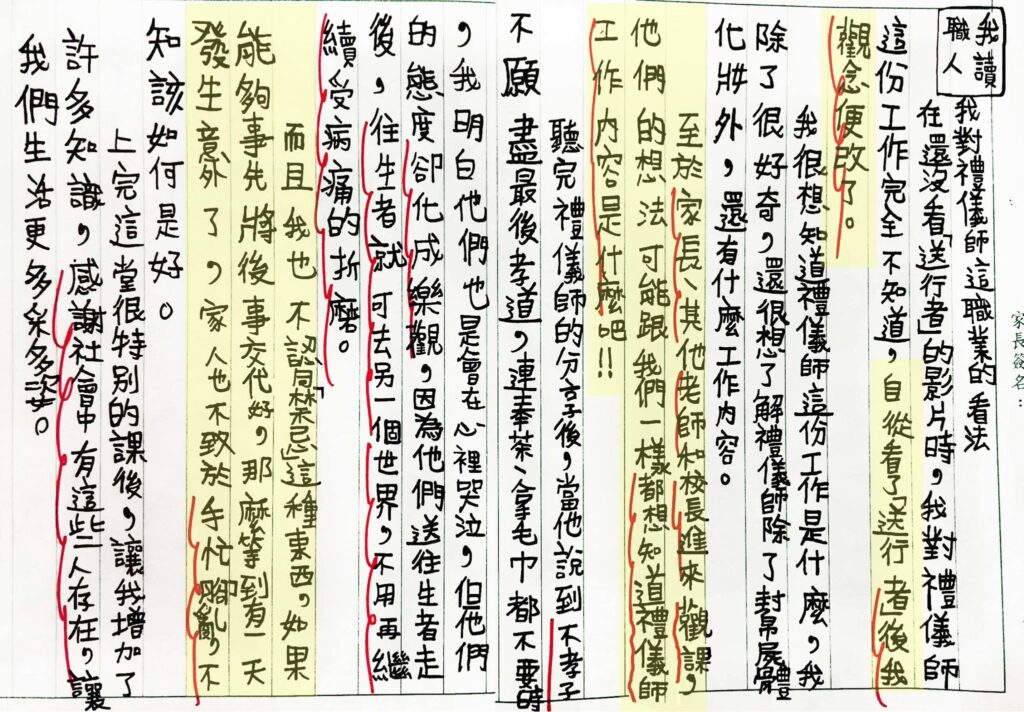 我讀
職人
我對禮儀師這職業的看法
在還沒看「送行者」的影片時，我對禮儀師
這份工作完全不知道，自從看了「送行者」後我
觀念便改了。
我很想知道禮儀師這份工作是什麼，我
除了很好奇，還很想了解禮儀師除了封帛屍體
化妝外，還有什麼工作內容。
至於家長、其他老師和校長進來觀課，
他們的想法可能跟我們一樣都想知道禮儀師
工作內容是什麼吧!!
聽完禮儀師的分享後，當他說到不孝子
不願盡最後孝道，連奉茶、拿毛巾都不要時
，我明白他們也是會在心裡哭泣，但他們
的態度卻化成樂觀，因為他們送往生者走
後，往生者就可去另一個世界，不用再繼
續受病痛的折磨。
而且我也不認同「禁忌」這種東西，如果
能夠事先將後事交代好，那麼等到有一天
發生意外了，家人也不致於手忙腳亂，不
知該如何是好。
上完這堂很特別的課後，讓我增加了
許多知識，感謝社會中有這些人存在，讓
我們生活更多采多姿。
家長簽名：